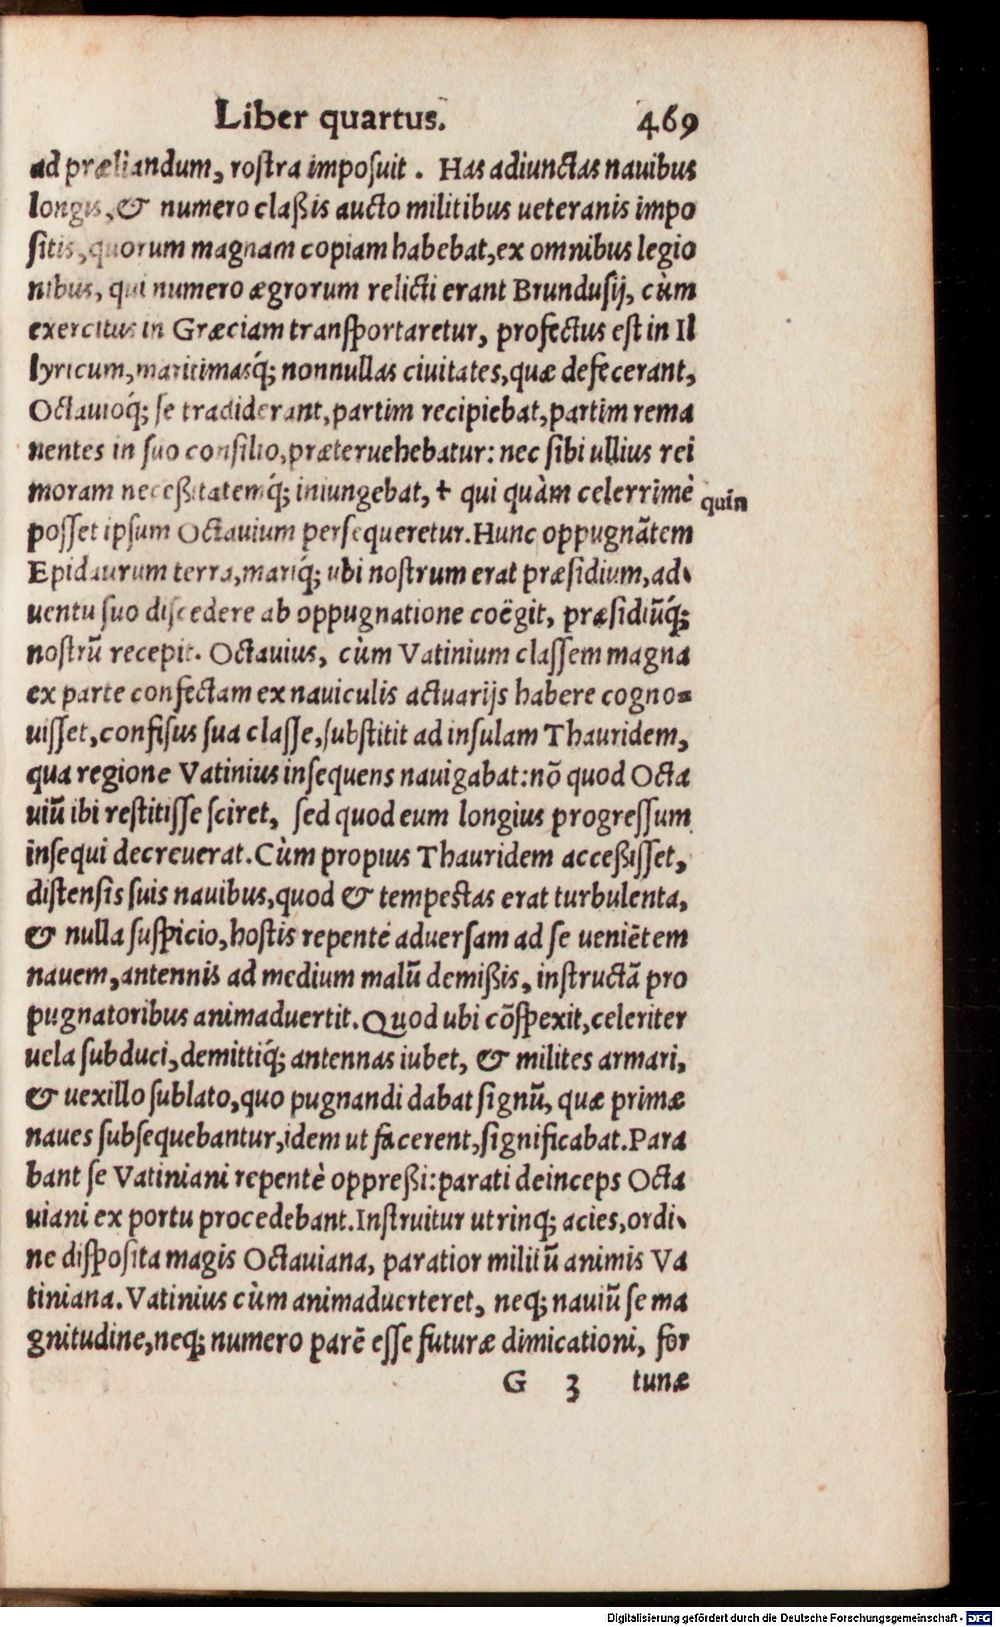 Liber quartus. 469
ad præliandum, rostra imposuit. Has adiunctas nauibus
longis, & numero claßis aucto militibus ueteranis impo
sitis, quorum magnam copiam habebat, ex omnibus legio
nibus, qui numero ægrorum relicti erant Brundusij, cùm
exercitus in Græciam transportaretur, profectus est in Il
lyricum, maritimasq́; nonnullas ciuitates, quæ defecerant,
Octauioq́; se tradiderant, partim recipiebat, partim rema
nentes in suo consilio, præteruehebatur: nec sibi ullius rei
moram neceßitatemq́; iniungebat, † qui quàm celerrimè
quin
posset ipsum Octauium persequeretur. Hunc oppugnãtem
Epidaurum terra, mariq́; ubi nostrum erat præsidium, ad-
uentu suo discedere ab oppugnatione coëgit, præsidiũq́;
nostrũ recepit. Octauius, cùm Vatinium classem magna
ex parte confectam ex nauiculis actuarijs habere cogno=
uisset, confisus sua classe, substitit ad insulam Thauridem,
qua regione Vatinius insequens nauigabat: nõ quod Octa
uiũ ibi restitisse sciret, sed quod eum longius progressum
insequi decreuerat. Cùm propius Thauridem acceßisset,
distensis suis nauibus, quod & tempestas erat turbulenta,
& nulla suspicio, hostis repentè aduersam ad se ueniẽtem
nauem, antennis ad medium malũ demißis, instructã pro
pugnatoribus animaduertit. Quod ubi cõspexit, celeriter
uela subduci, demittiq́; antennas iubet, & milites armari,
& uexillo sublato, quo pugnandi dabat signũ, quæ primæ
naues subsequebantur, idem ut facerent, significabat. Para
bant se Vatiniani repentè oppreßi: parati deinceps Octa
uiani ex portu procedebant. Instruitur utrinq; acies, ordi-
ne disposita magis Octauiana, paratior militũ animis Va
tiniana. Vatinius cùm animaduerteret, neq; nauiũ se ma
gnitudine, neq; numero parẽ esse futuræ dimicationi, for
G 3 tunæ
Digitalisierung gefördert durch die Deutsche Forschungsgemeinschaft - DFG